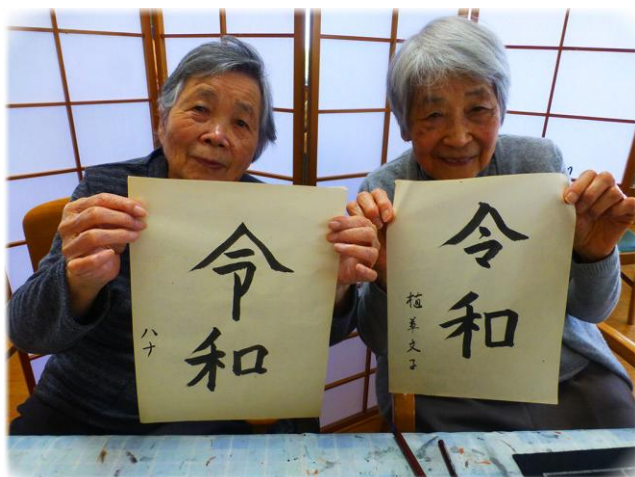 令和
ハナ
令和
植草文子